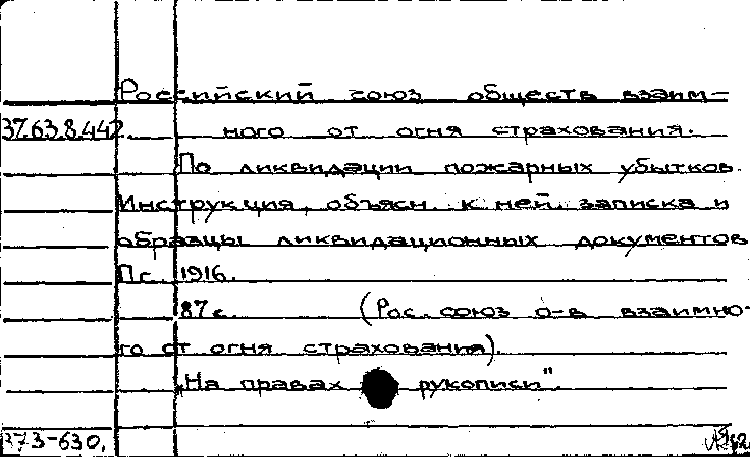 Российский союз обществ взаим-
37.63.8.442. ного от огня страхования.
По ликвидации пожарных убытков.
Инструкция, объясн. к ней записка и
образцы ликвидационных документов
Пг. 1916.
87 с. (Рос. союз о-в взаимно-
го от огня страхования).
„На правах рукописи".
373-630.